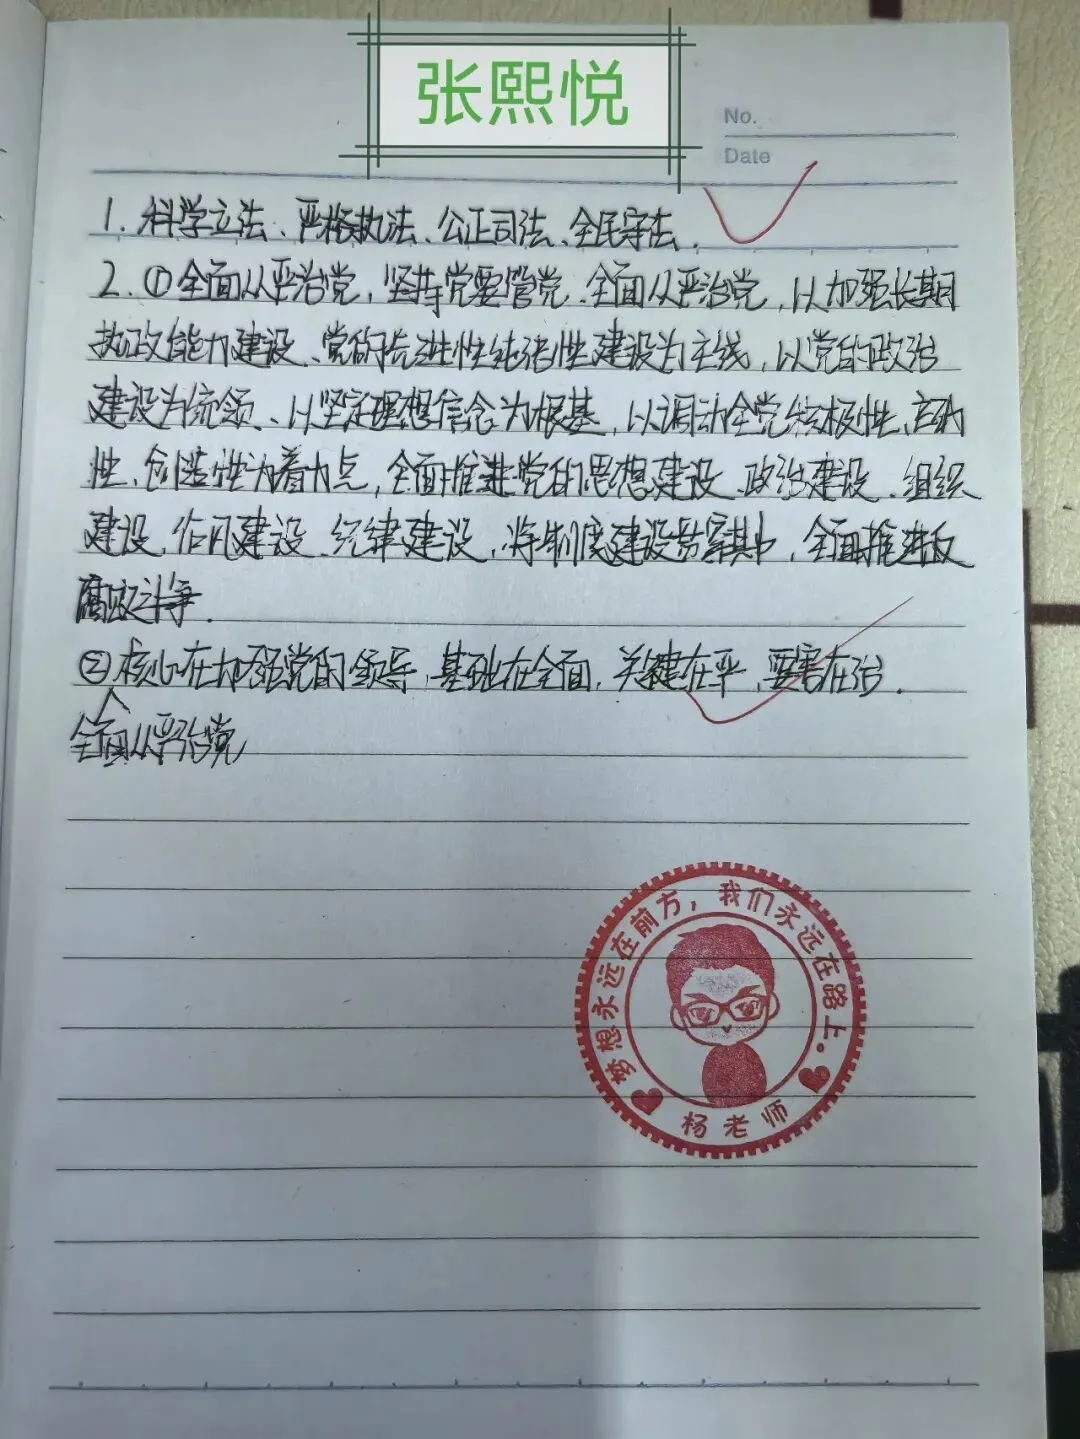 张熙悦
No.
Date
1. 科学立法、严格执法、公正司法、全民守法.
2. ①全面从严治党, 坚持党要管党、全面从严治党, 以加强长期
执政能力建设、党的先进性纯洁性建设为主线, 以党的政治
建设为统领、以坚定理想信念为根基, 以调动全党积极性、主动
性、创造性为着力点, 全面推进党的思想建设、政治建设、组织
建设、作风建设、纪律建设, 将制度建设贯穿其中, 全面推进反
腐败斗争.
②核心在加强党的领导, 基础在全面, 关键在严, 要害在治.
全面从严治党
梦想永远在前方，我们永远在路上。
杨老师